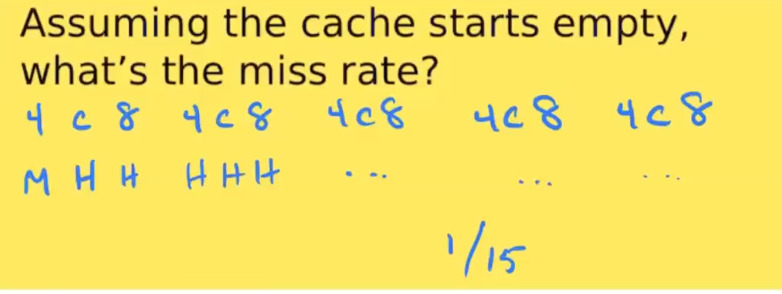 Assuming the cache starts empty,
what's the miss rate?
4 c 8 4 c 8 4 c 8 4 c 8 4 c 8
M H H H H H ... ... ...
1/15